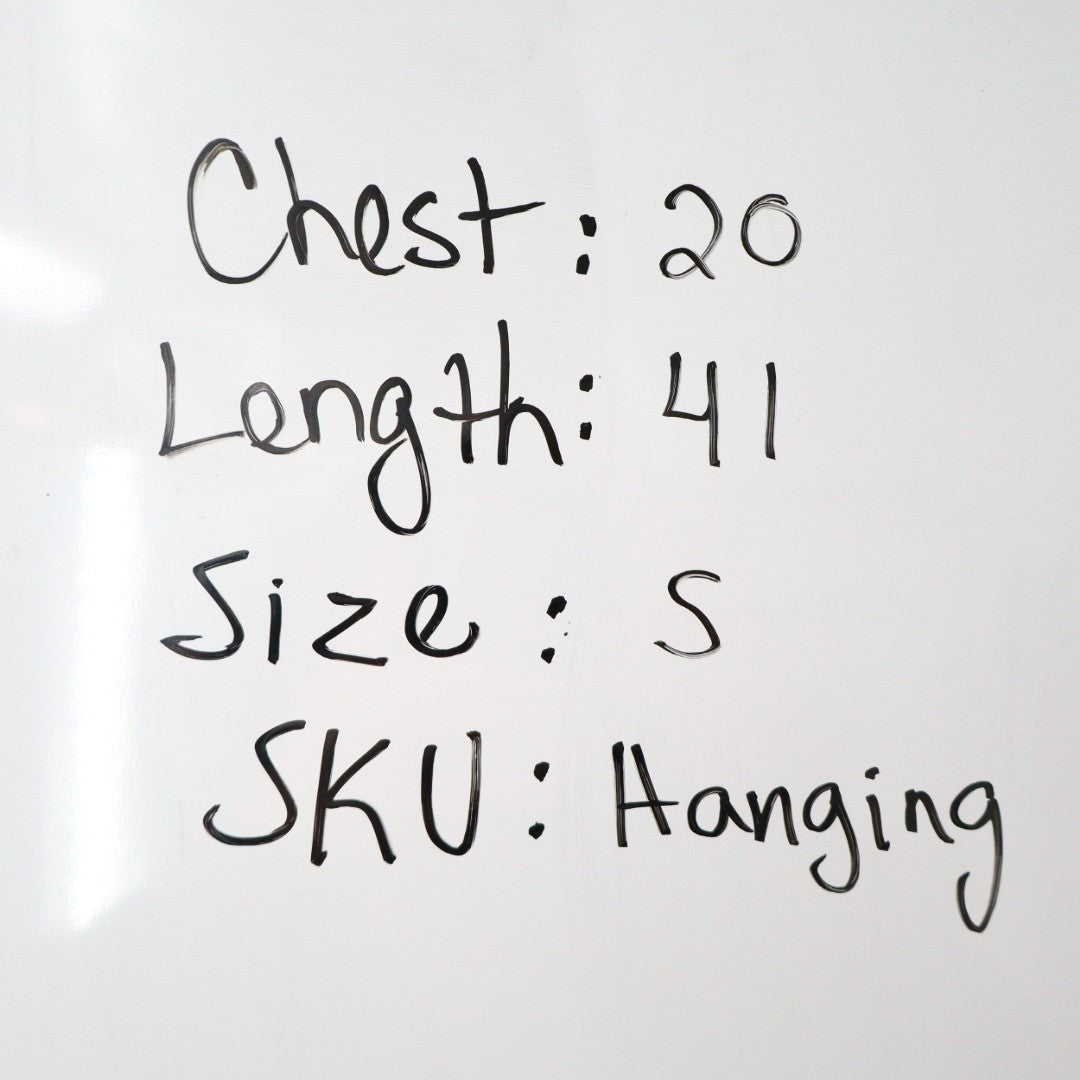 Chest: 20
Length: 41
Size: S
SKU: Hanging